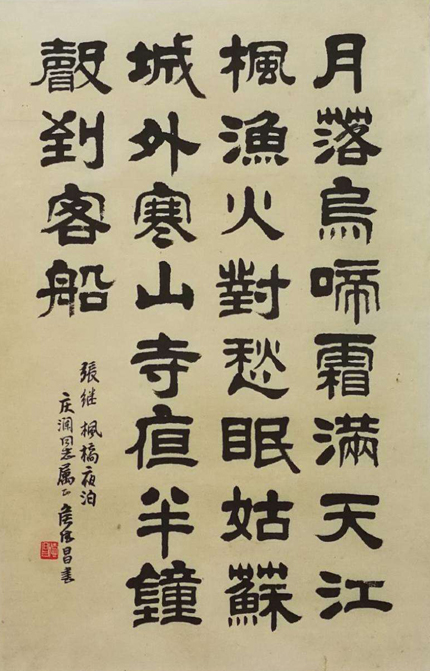 月落烏啼霜滿天江
楓漁火對愁眠姑蘇
城外寒山寺亱半鐘
聲到客船
張继楓橋夜泊
庆润同志属正 昌書